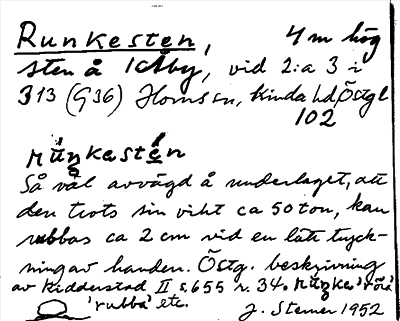 Runkesten, 4 m hög
sten å Kåby, vid 2:a 3 i
313 (G36) Horns sn, Kinda hd, Östgl
102
ruŋkestén
Så väl avvägd å underlaget, att
den trots sin vikt ca 50 ton, kan
rubbas ca 2 cm vid en lätt tryck-
ning av handen. Östg. beskrivning
av Ridderstad II s. 655 r. 34. ruŋka 'röra'
'rubba' etc.
J. Sterner 1952